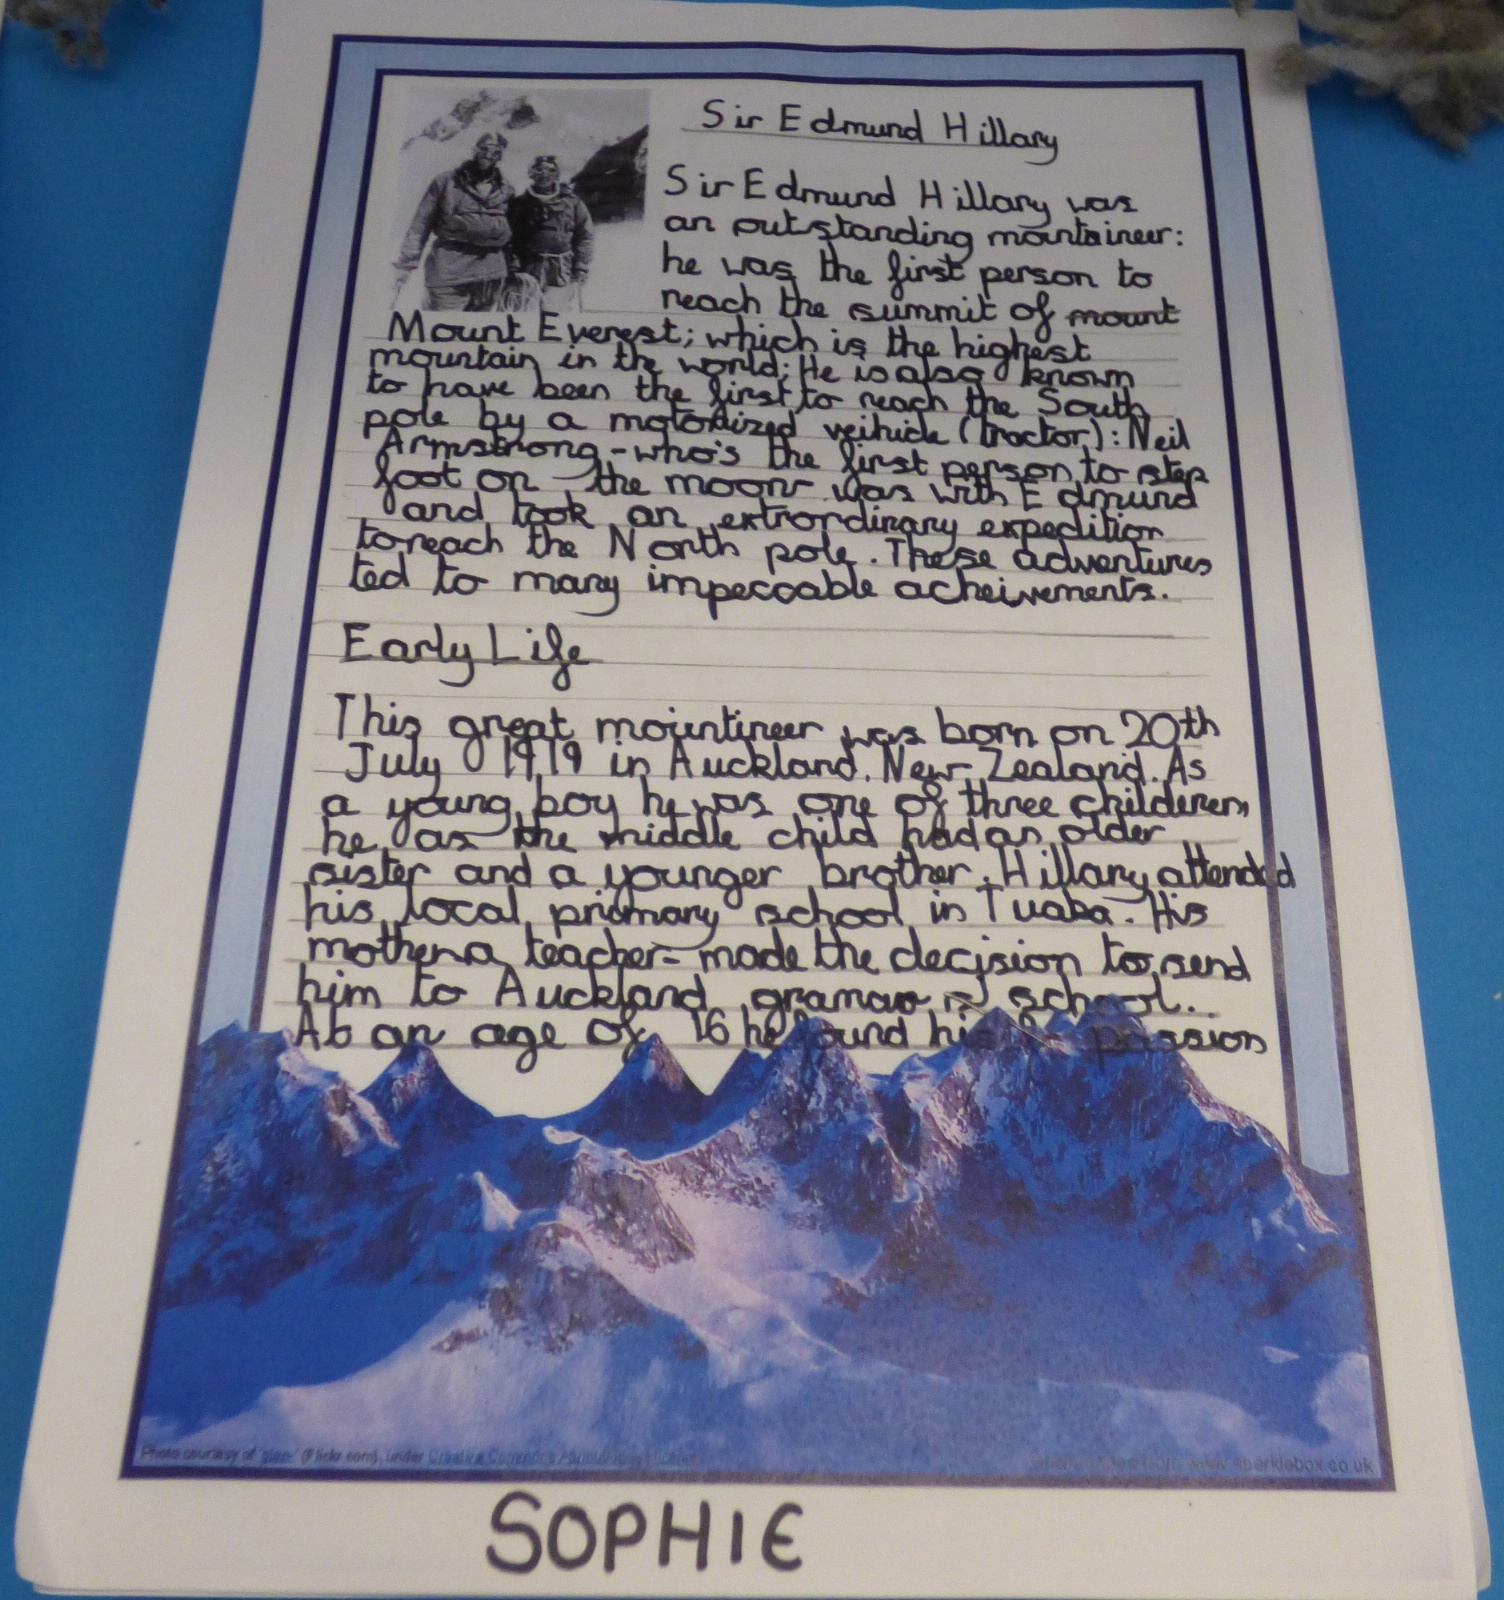 Sir Edmund Hillary
Sir Edmund Hillary was
an outstanding mountaineer:
he was the first person to
reach the summit of mount
Mount Everest; which is the highest
mountain in the world; He is also known
to have been the first to reach the South
pole by a motorized veihicle (tractor): Neil
Armstrong - who's the first person to step
foot on the moon was with Edmund
and took an extrordinary expedition
to reach the North pole. These adventures
led to many impeccable acheivements.
Early Life
This great mountineer was born on 20th
July 1919 in Auckland, New Zealand. As
a young boy he was one of three childeren,
he as the middle child had an older
sister and a younger brother. Hillary attended
his local primary school in Tuaka. His
mother-a teacher- made the decision to send
him to Auckland school..
At an age of 16 he found his passion
Photo courtesy of (Flickr.com), under Creative Commons
www.sparklebox.co.uk
SOPHIE